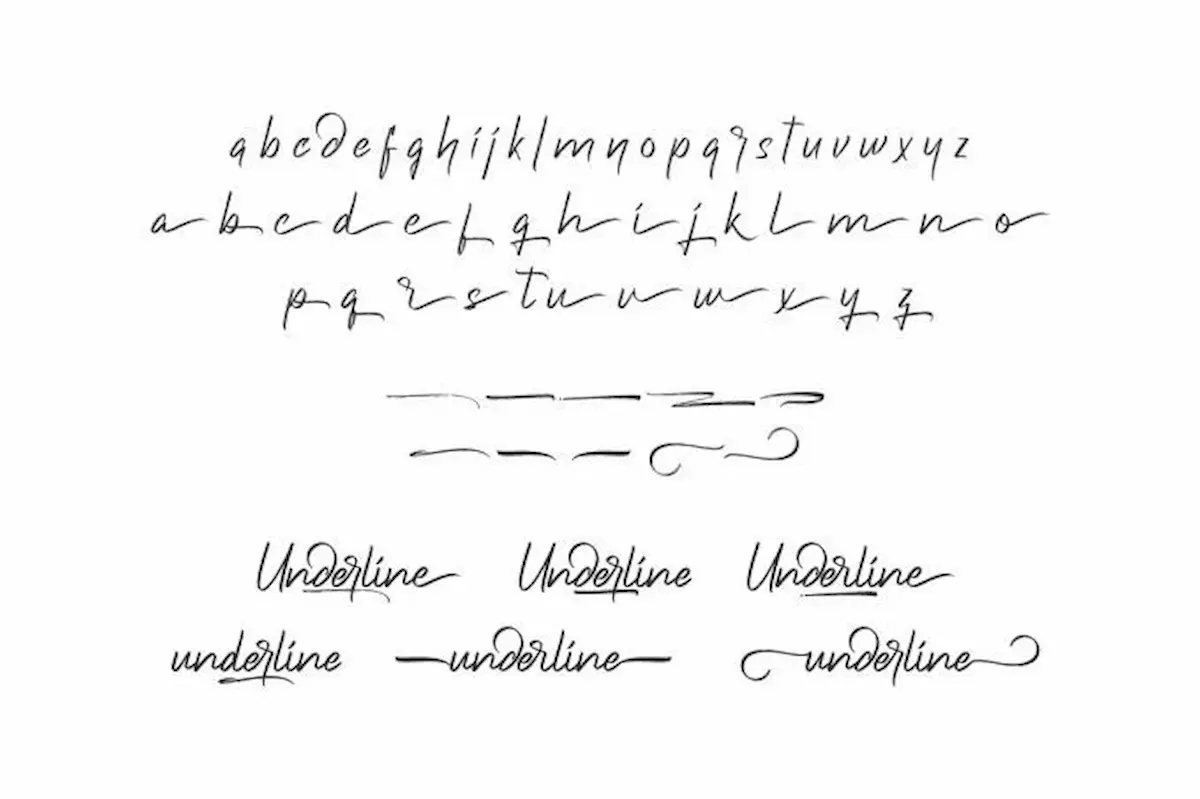 a b c d e f g h i j k l m n o p q r s t u v w x y z
a b c d e f g h i j k l m n o
p q r s t u v w x y z
Underline Underline Underline
underline underline underline